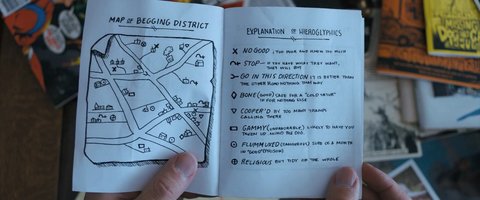 MAP OF BEGGING DISTRICT
EXPLANATION OF HIEROGLYPHICS
NO GOOD; TOO POOR AND KNOW TOO MUCH
STOP – IF YOU HAVE WHAT THEY WANT,
THEY WILL BUY
GO IN THIS DIRECTION, IT IS BETTER THAN
THE OTHER ROAD. NOTHING THAT WAY
BONE (GOOD) SAFE FOR A "COLD TATUR"
IF FOR NOTHING ELSE
COOPER'D BY TOO MANY TRAMPS
CALLING THERE
GAMMY (UNFAVORABLE) LIKELY TO HAVE YOU
TAKEN UP. MIND THE DOG
FLUMMUXED (DANGEROUS) SURE OF A MONTH
IN
RELIGIOUS BUT TIDY ON THE WHOLE